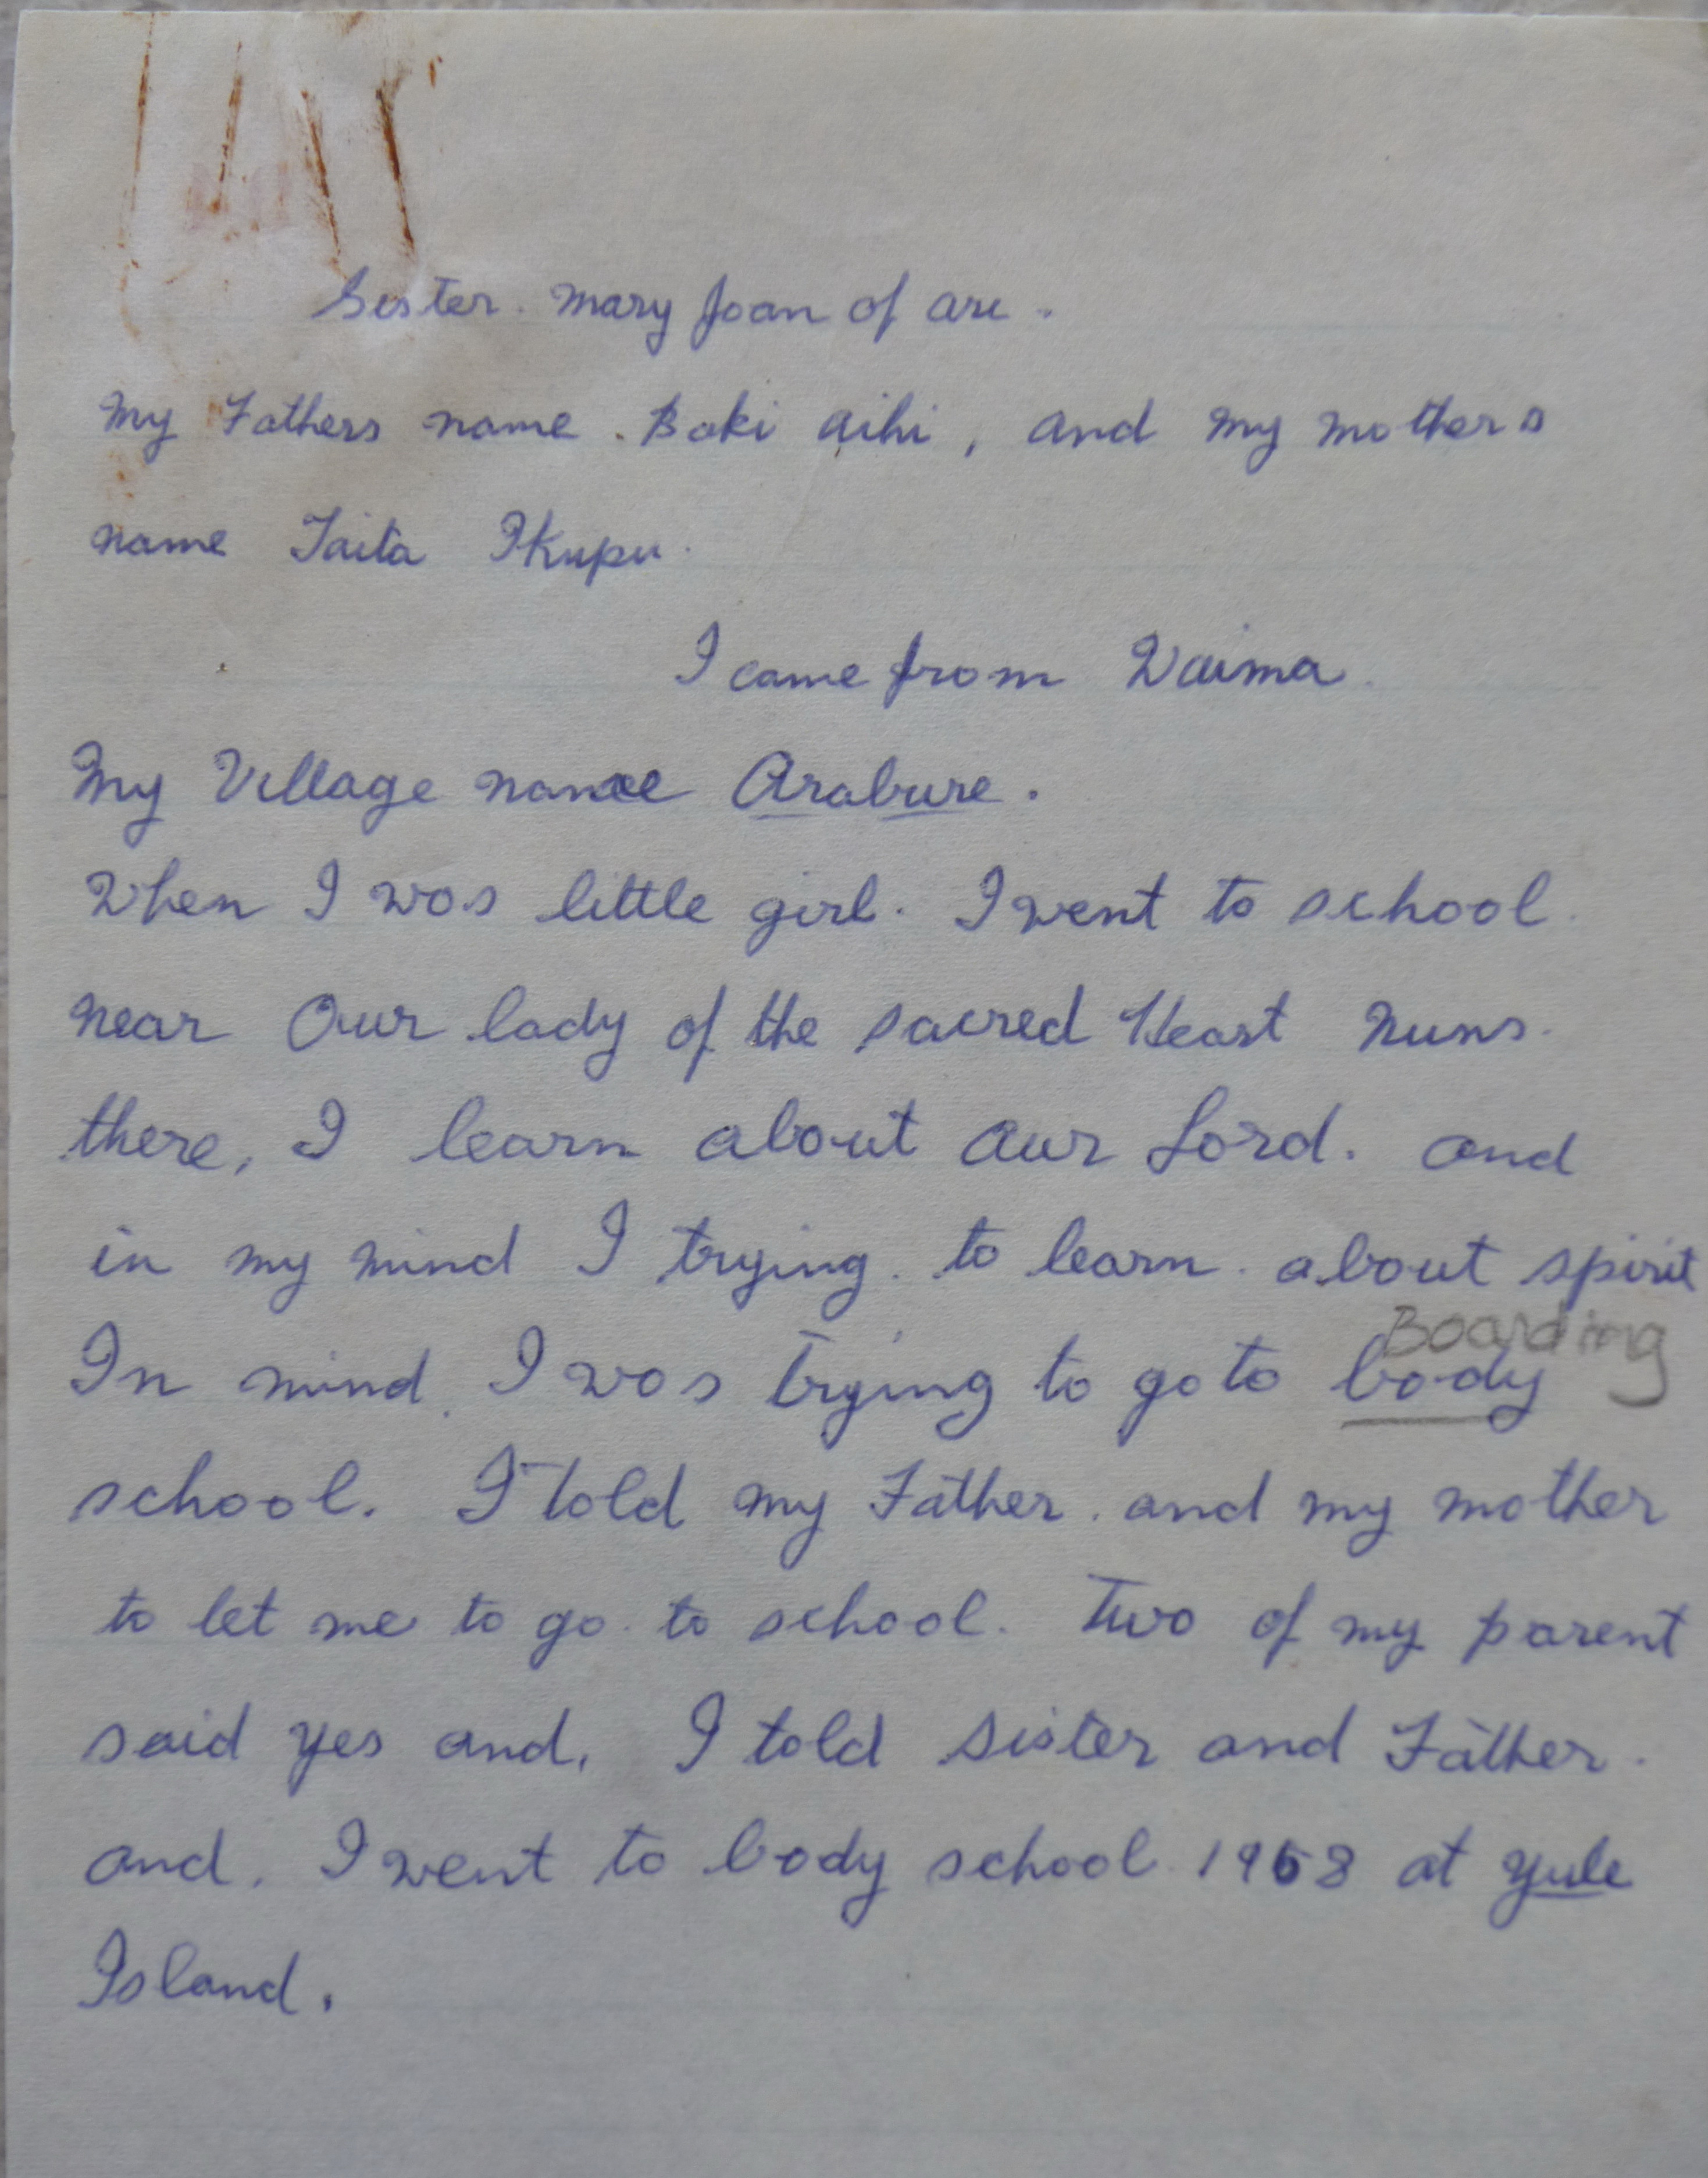 Sister. Mary Joan of arc.
My Fathers name. Boki aihi, and my mothers
name Taita Ikupu.
I came from Waima.
My Village name Arabure.
When I was little girl. I went to school.
near Our lady of the sacred Heart Nuns.
there, I learn about our Lord. and
in my mind I trying. to learn. about spirit
Boarding
In mind. I was trying to go to body
school. I told my Father. and my mother
to let me to go. to school. Two of my parent
said yes and, I told sister and Father.
and. I went to body school. 1958 at yule
Island.